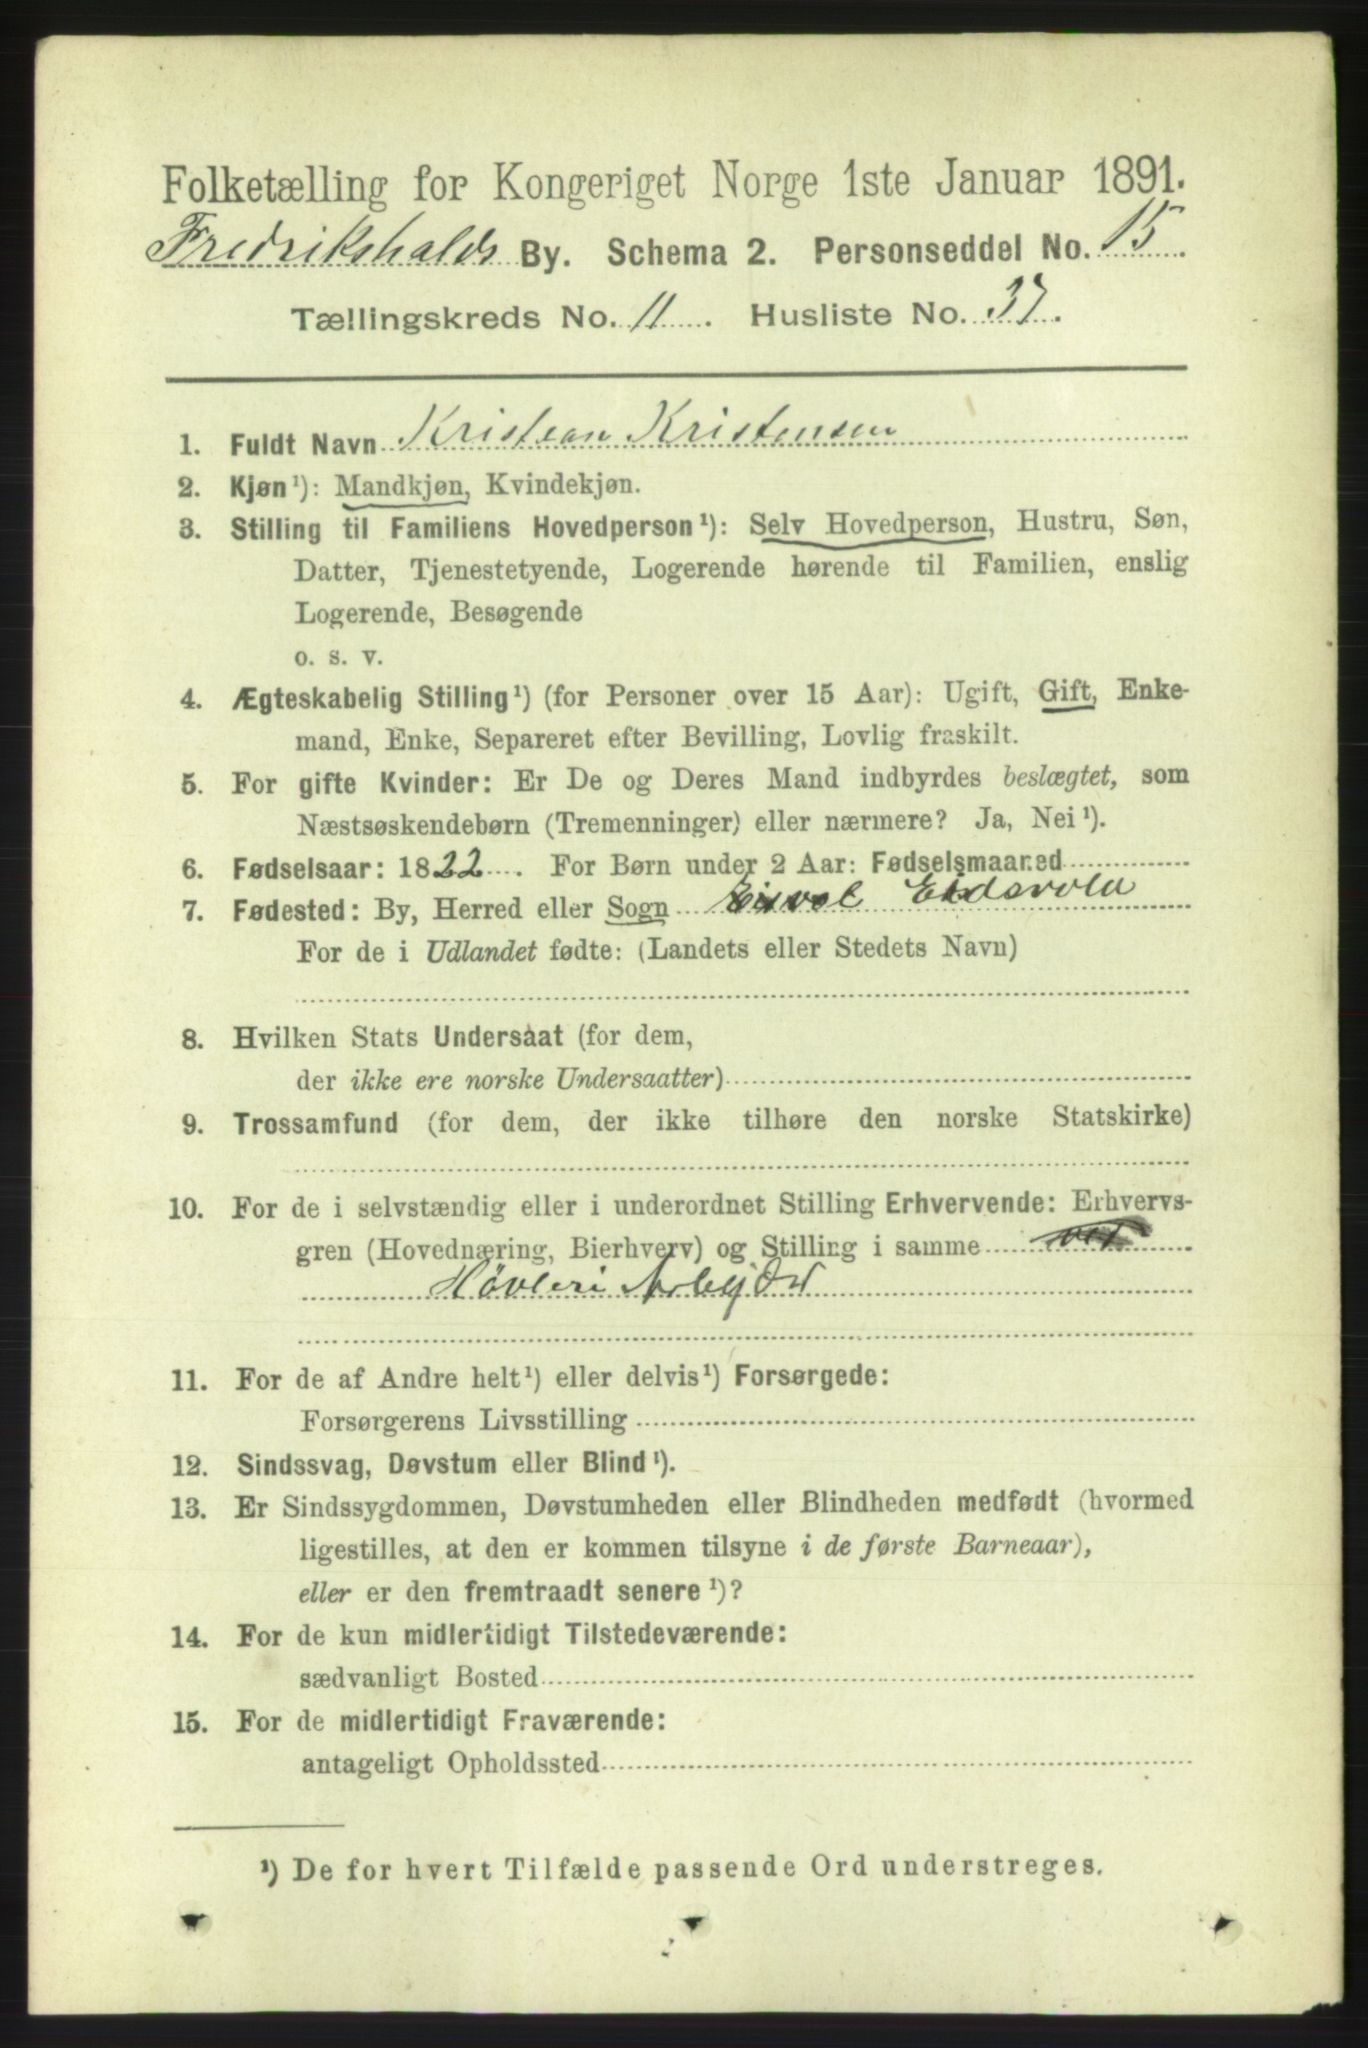 Folketælling for Kongeriget Norge 1ste Januar 1891.
Fredrikshalds By. Schema 2. Personseddel No. 15.
Tællingskreds No. 11. Husliste No. 37.
1. Fuldt Navn Kristian Kristensen
2. Kjøn¹): Mandkjøn, Kvindekjøn.
3. Stilling til Familiens Hovedperson¹): Selv Hovedperson, Hustru, Søn,
Datter, Tjenestetyende, Logerende hørende til Familien, enslig
Logerende, Besøgende
o. s. v.
4. Ægteskabelig Stilling¹) (for Personer over 15 Aar): Ugift, Gift, Enke-
mand, Enke, Separeret efter Bevilling, Lovlig fraskilt.
5. For gifte Kvinder: Er De og Deres Mand indbyrdes beslægtet, som
Næstsøskendebørn (Tremenninger) eller nærmere? Ja, Nei¹).
6. Fødselsaar: 1822. For Børn under 2 Aar: Fødselsmaaned
7. Fødested: By, Herred eller Sogn Eisvol Eidsvold
For de i Udlandet fødte: (Landets eller Stedets Navn)
8. Hvilken Stats Undersaat (for dem,
der ikke ere norske Undersaatter)
9. Trossamfund (for dem, der ikke tilhøre den norske Statskirke)
10. For de i selvstændig eller i underordnet Stilling Erhvervende: Erhvervs-
gren (Hovednæring, Bierhverv) og Stilling i samme ved
Høvleri Arbejder
11. For de af Andre helt¹) eller delvis¹) Forsørgede:
Forsørgerens Livsstilling
12. Sindssvag, Døvstum eller Blind¹).
13. Er Sindssygdommen, Døvstumheden eller Blindheden medfødt (hvormed
ligestilles, at den er kommen tilsyne i de første Barneaar),
eller er den fremtraadt senere¹)?
14. For de kun midlertidigt Tilstedeværende:
sædvanligt Bosted
15. For de midlertidigt Fraværende:
antageligt Opholdssted
¹) De for hvert Tilfælde passende Ord understreges.